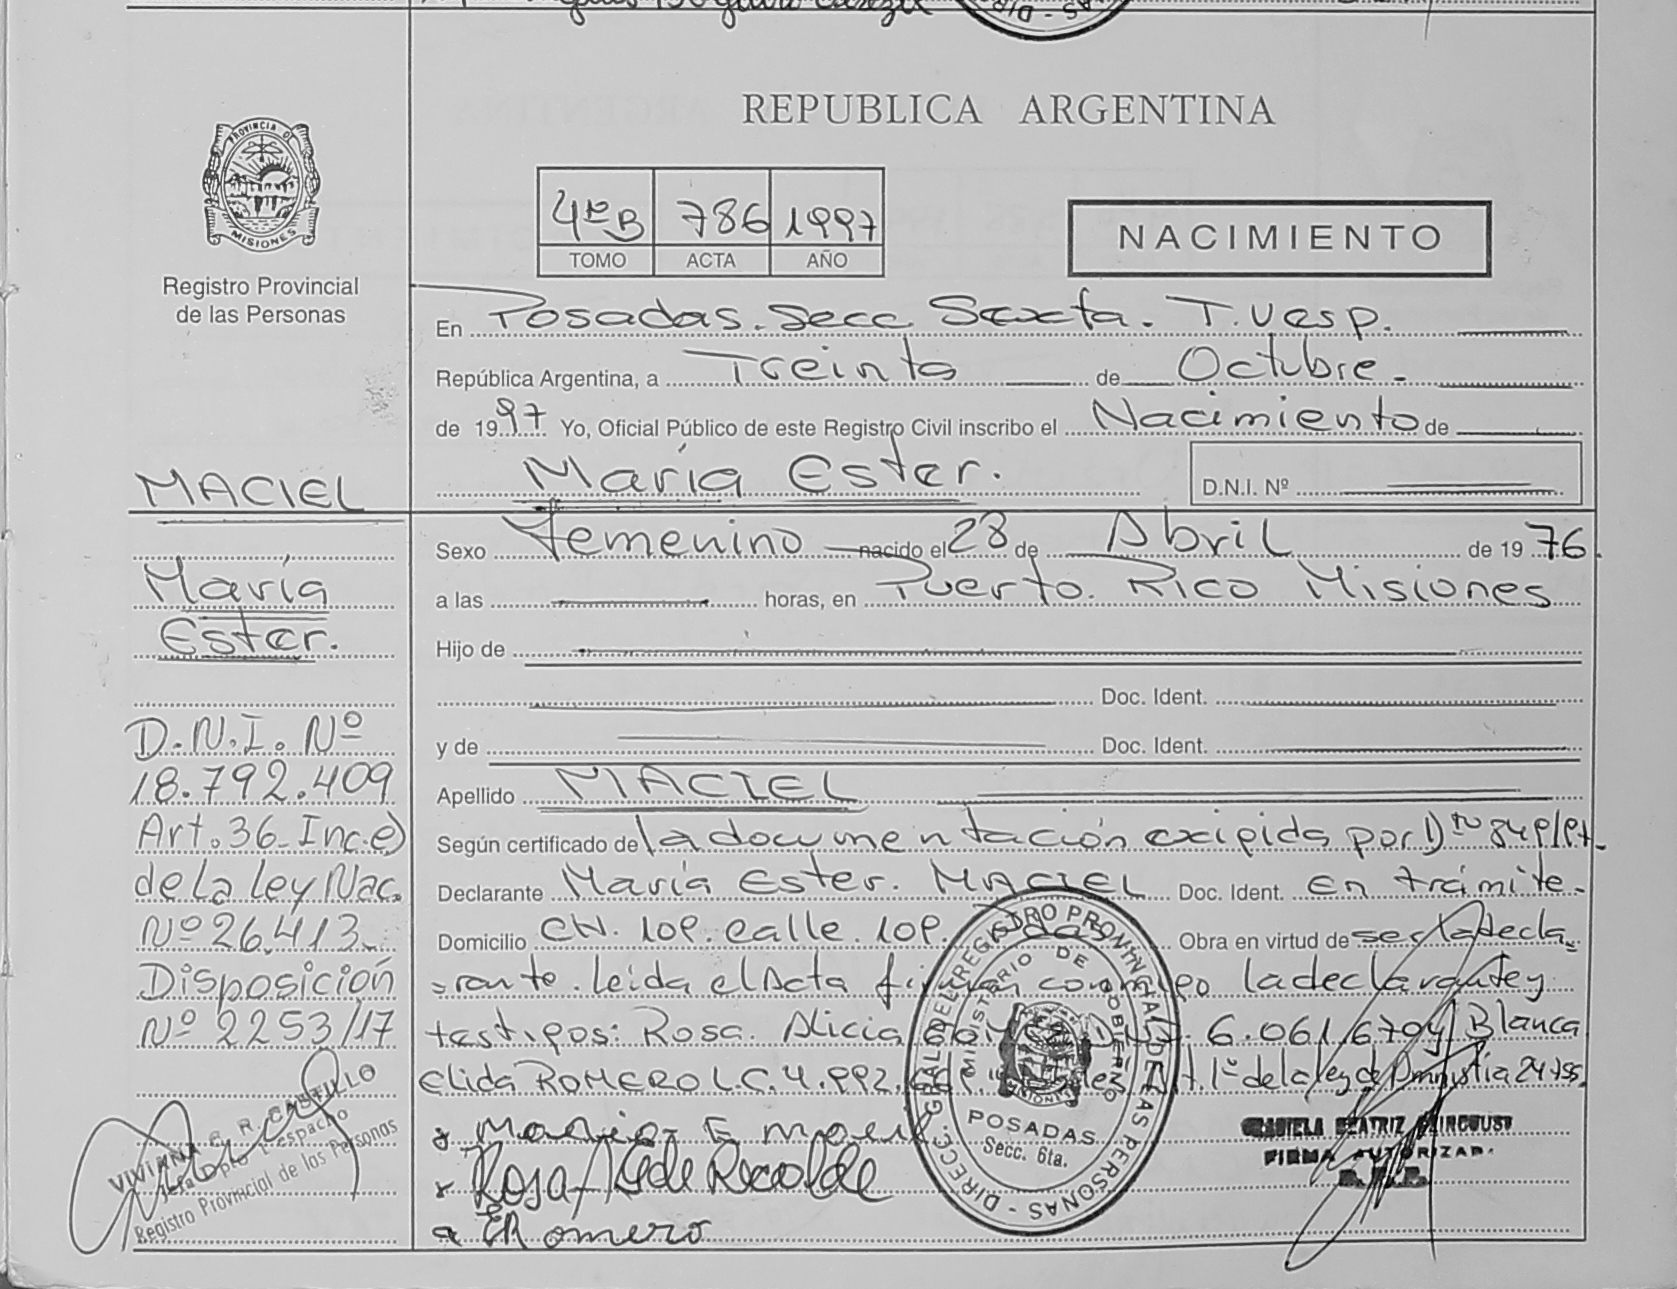 REPUBLICA ARGENTINA
PROVINCIA DE
MISIONES
Registro Provincial
de las Personas
4º B 786 1997
TOMO ACTA AÑO
NACIMIENTO
En Posadas. Secc Sexta. T. Vesp.
República Argentina, a Treinta de Octubre.
de 1997 Yo, Oficial Público de este Registro Civil inscribo el Nacimiento de
María Ester. D.N.I. Nº
Sexo Femenino nacido el 28 de Abril de 1976.
a las horas, en Puerto. Rico Misiones
Hijo de
Doc. Ident.
y de Doc. Ident.
Apellido MACIEL
Según certificado de la documentación exigida por D Nº 849/97.
Declarante María Ester. MACIEL Doc. Ident. en trámite.
Domicilio CH. 109. calle. 109. Obra en virtud de ser la decla
rante. leída el Acta firman conmigo la declarante y
testigos: Rosa. Alicia 6.061.670 y Blanca
Elida ROMERO L.C. 4.992. Art. 1º de la ley de Amnistía 24755.
x Maria E
x Rosa A de Recalde
ER omero
MACIEL
María
Ester.
D.N.I. Nº
18.792.409
Art. 36 Inc. e)
de la Ley Nac.
Nº 26.413.
Disposición
Nº 2253/17
VIVIANA E. R. CASTILLO
Jefa Dpto Despacho
Registro Provincial de las Personas
DIRECC. GRAL DEL REGISTRO PROVINCIAL DE LAS PERSONAS
MINISTERIO DE GOBIERNO
MISIONES
POSADAS
Secc. 6ta.
GRACIELA BEATRIZ
FIRMA AUTORIZADA